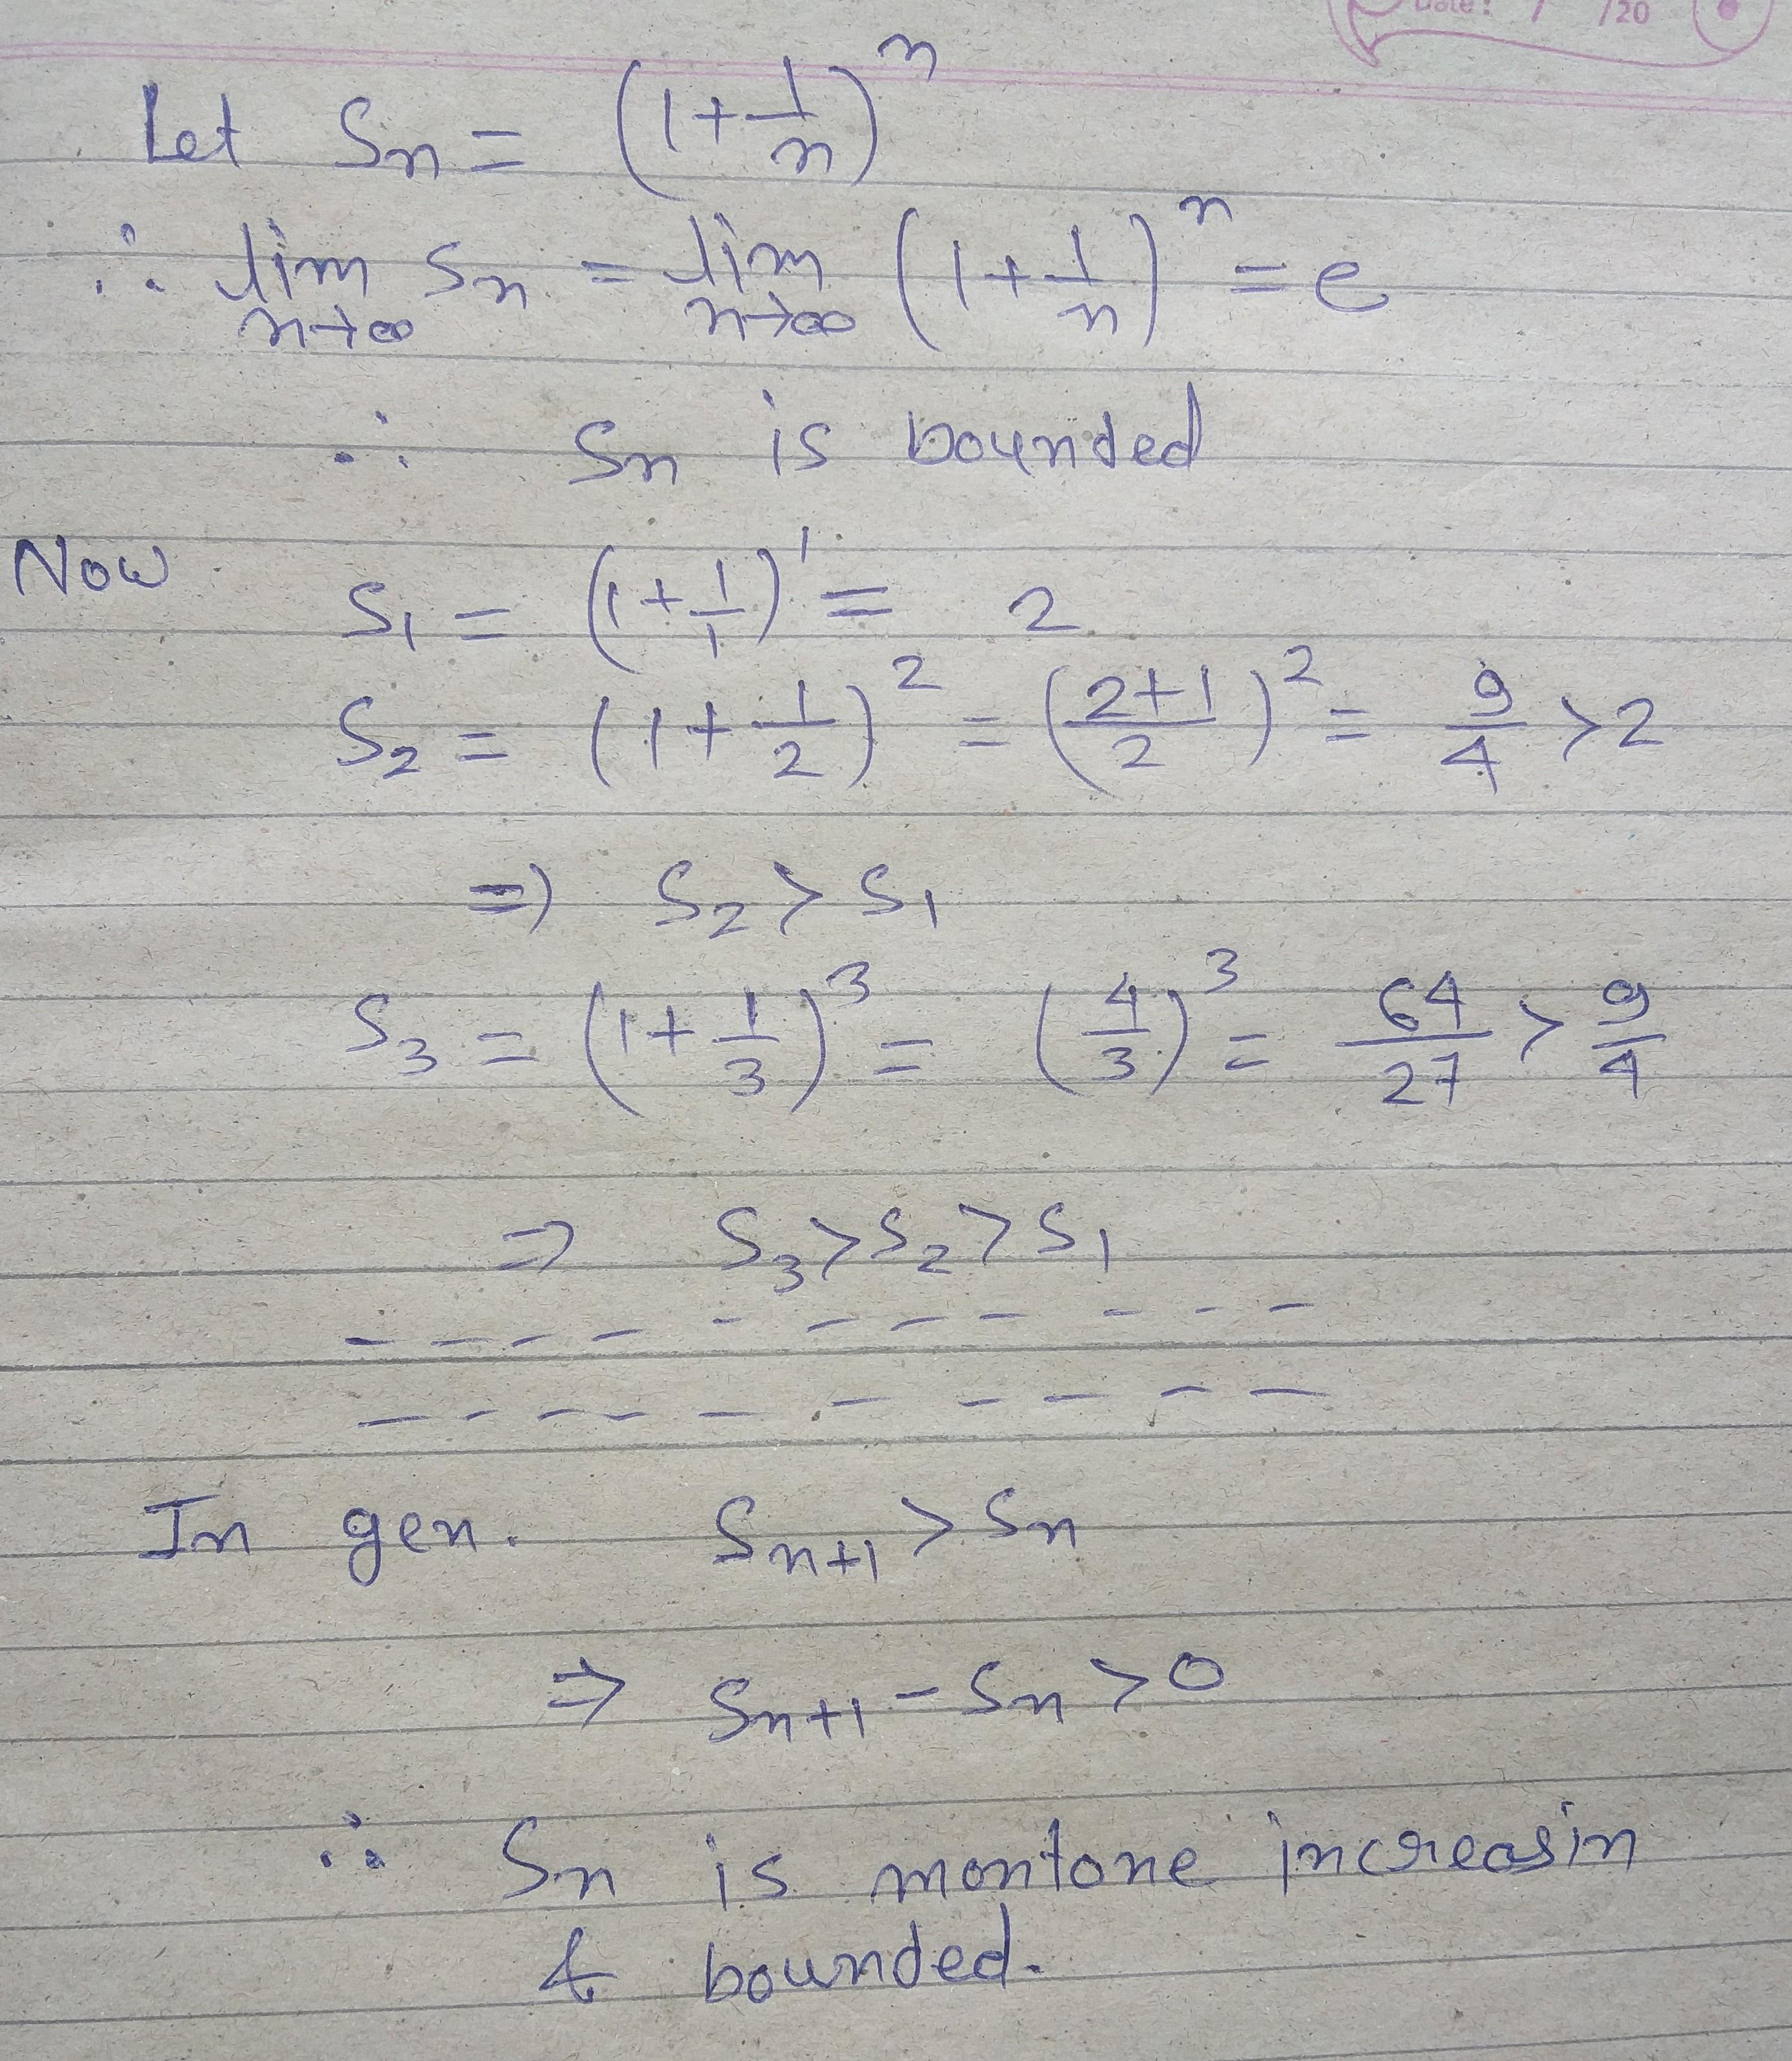 Date: / /20
Let Sn = (1+1/n)^n
∴ lim n→∞ Sn = lim n→∞ (1+1/n)^n = e
∴ Sn is bounded
Now S1 = (1+1/1)^1 = 2
S2 = (1+1/2)^2 = ((2+1)/2)^2 = 9/4 > 2
=> S2 > S1
S3 = (1+1/3)^3 = (4/3)^3 = 64/27 > 9/4
=> S3 > S2 > S1
- - - - - - - - - - -
- - - - - - - - - - -
In gen. Sn+1 > Sn
=> Sn+1 - Sn > 0
∴ Sn is montone increasin
& bounded.